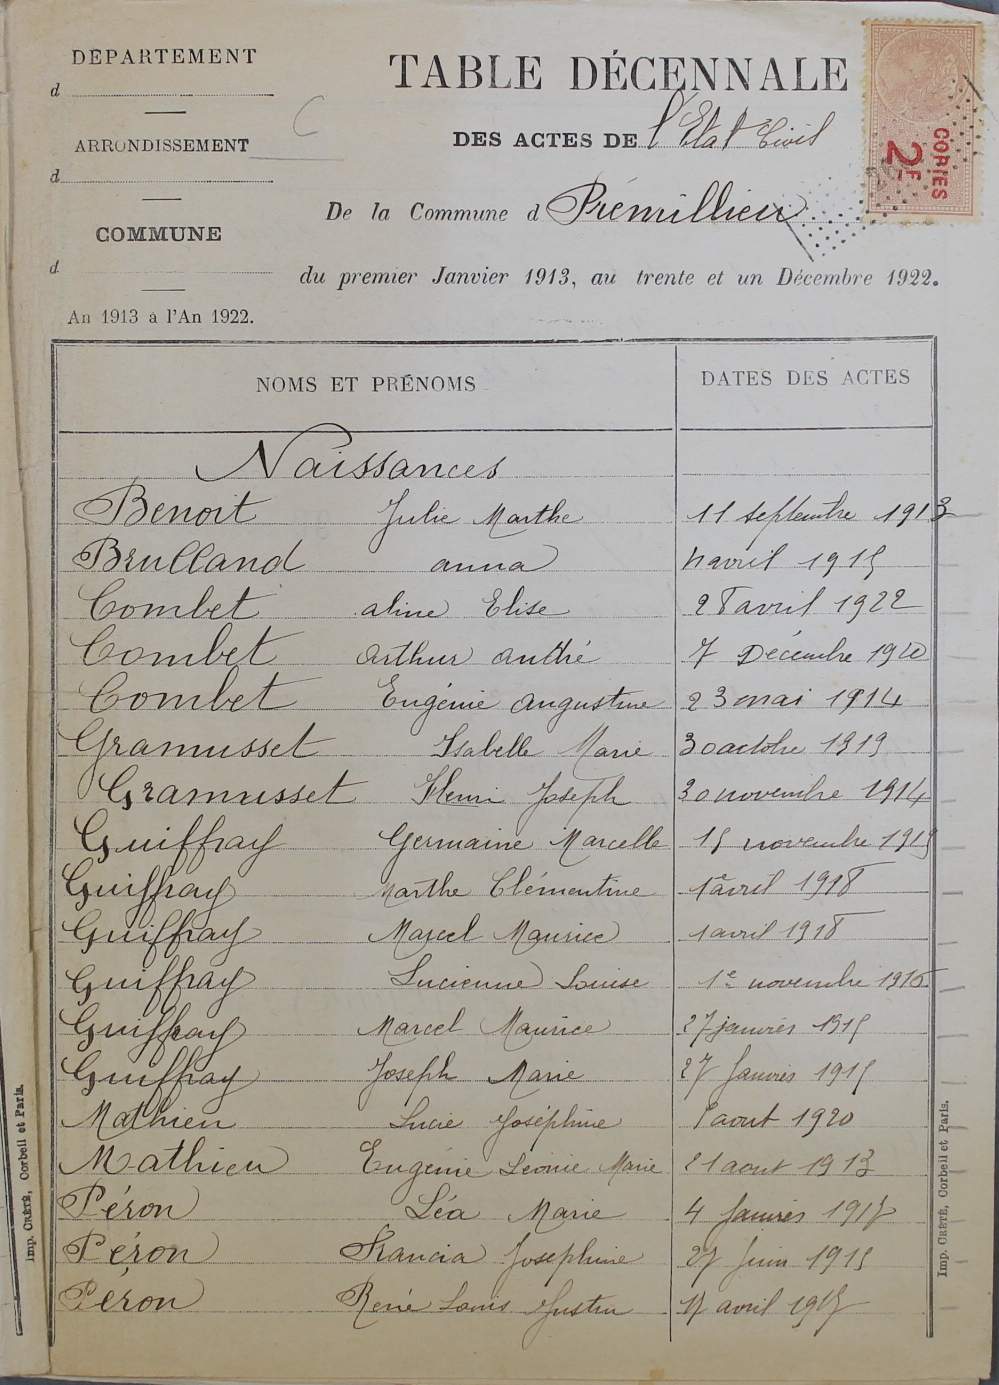 DÉPARTEMENT
d
ARRONDISSEMENT
d
COMMUNE
d
An 1913 à l'An 1922.
C
TABLE DÉCENNALE
DES ACTES DE l'Etat Civil
De la Commune d Prémillieu
du premier Janvier 1913, au trente et un Décembre 1922.
COPIES
2F
NOMS ET PRÉNOMS DATES DES ACTES
Naissances
Benoit Julie Marthe 11 septembre 1913
Brulland anna avril 1915
Combet aline Elise 28 avril 1922
Combet Arthur André 7 Décembre 1920
Combet Eugénie Augustine 23 mai 1914
Gramusset Isabelle Marie 30 octobre 1919
Gramusset Henri Joseph 30 novembre 1914
Guiffray Germaine Marcelle 15 novembre 1919
Guiffray Marthe Clémentine 1er avril 1918
Guiffray Marcel Maurice 1 avril 1918
Guiffray Lucienne Louise 1e novembre 1916
Guiffray Marcel Maurice 27 janvier 1915
Guiffray Joseph Marie 27 Janvier 1915
Mathieu Lucie Joséphine aout 1920
Mathieu Eugénie Léonie Marie 21 aout 1913
Péron Léa Marie 4 Janvier 1917
Péron Francia Josephine 27 Juin 1915
Péron René Louis Justin 17 avril 1917
Imp. CRÉTÉ, Corbeil et Paris.
Imp. CRÉTÉ, Corbeil et Paris.